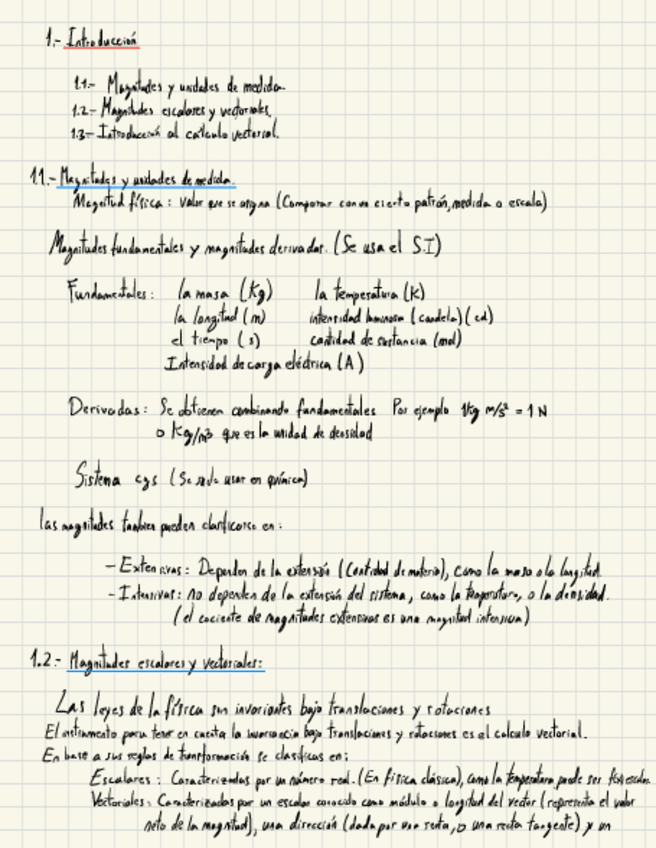 1.- Introducción
1.1.- Magnitudes y unidades de medida.
1.2.- Magnitudes escalares y vectoriales.
1.3.- Introducción al cálculo vectorial.
1.1.- Magnitudes y unidades de medida.
Magnitud física: valor que se asigna (Comparar con un cierto patrón, medida o escala)
Magnitudes fundamentales y magnitudes derivadas. (Se usa el S.I)
Fundamentales: la masa (Kg) la temperatura (K)
la longitud (m) intensidad luminosa (candela) (cd)
el tiempo (s) cantidad de sustancia (mol)
Intensidad de carga eléctrica (A)
Derivadas: Se obtienen combinando fundamentales Por ejemplo 1Kg m/s² = 1 N
o Kg/m³ que es la unidad de densidad
Sistema cgs (Se suele usar en química)
las magnitudes tambien pueden clasificarse en:
- Extensivas: Dependen de la extensión (Cantidad de materia), como la masa o la longitud.
- Intensivas: no dependen de la extensión del sistema, como la temperatura, o la densidad.
(el cociente de magnitudes extensivas es una magnitud intensiva)
1.2.- Magnitudes escalares y vectoriales:
Las leyes de la física son invariantes bajo translaciones y rotaciones
El instrumento para tener en cuenta la invariancia bajo translaciones y rotaciones es el calculo vectorial.
En base a sus reglas de transformación se clasifican en:
Escalares: Caracterizadas por un número real. (En física clásica), como la temperatura, puede ser
Vectoriales: Caracterizadas por un escalar conocido como módulo o longitud del vector (representa el valor
neto de la magnitud), una dirección (dada por una recta, o una recta tangente) y un